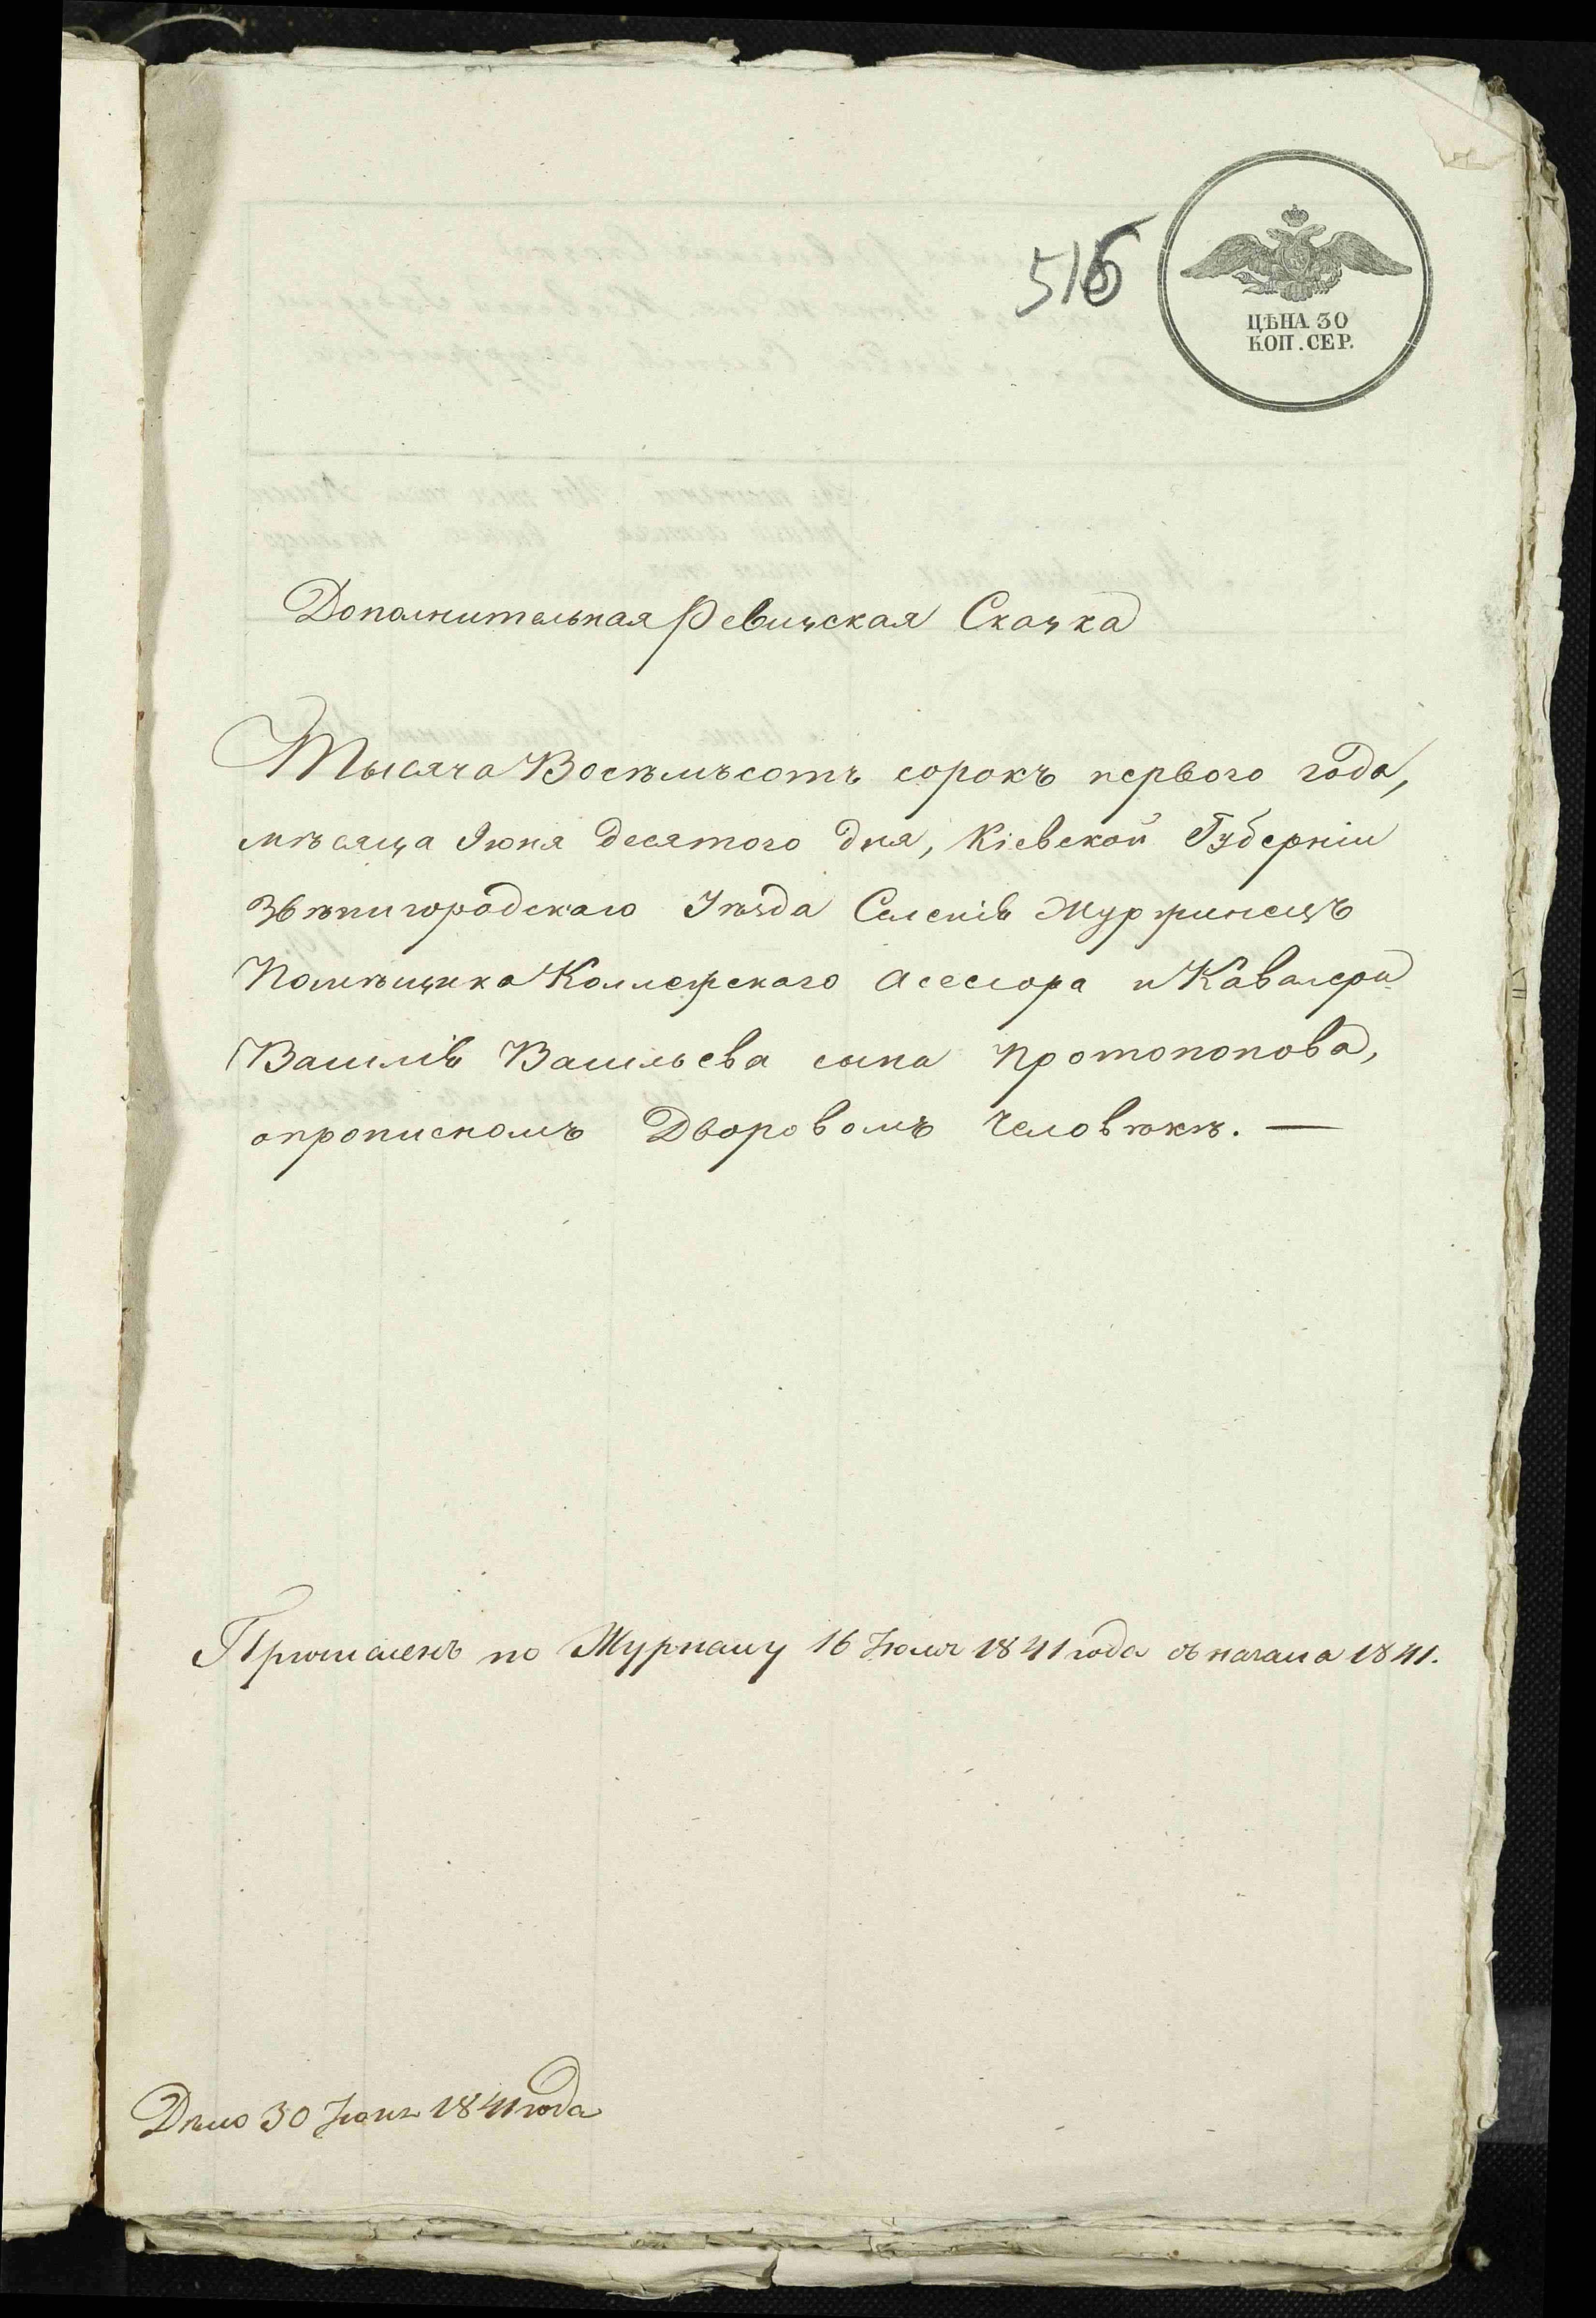 516
ЦѢНА 30
КОП. СЕР.
Дополнительная Ревизская Сказка
Тысяча Восѣмъсотъ сорокъ первого года,
мѣсяца Июня десятого дня, Кіевской Губерніи
Звѣнигородскаго Уѣзда Селенія Мурзинецъ
Помѣщика Коллежскаго Асессора и Кавалера
Василія Васильева сына Протопопова,
опрописномъ Дворовомъ Человѣкѣ. —
Причисленъ по Журналу 16 Июля 1841 года съ начала 1841.
Дѣло 30 Июня 1841 года